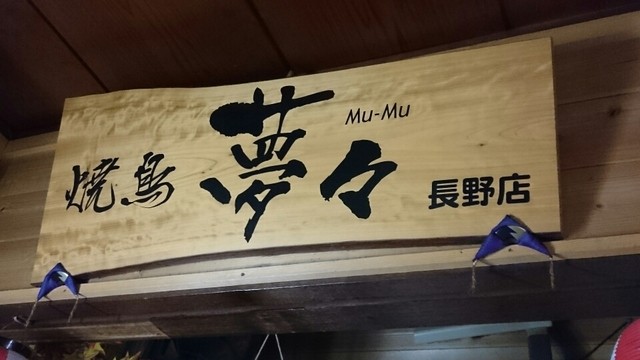 焼鳥 夢々 Mu-Mu 長野店